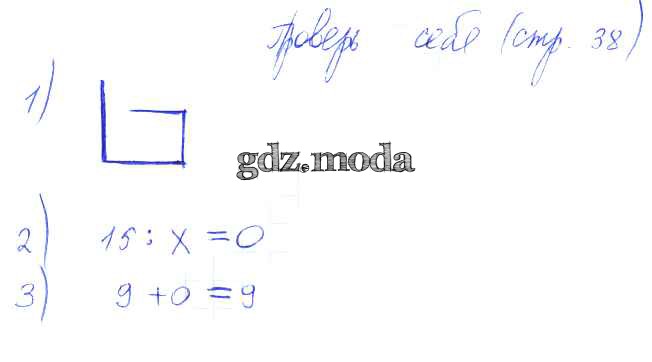 Проверь себя (стр. 38)
1)
gdz.moda
2) 15 : x = 0
3) 9 + 0 = 9